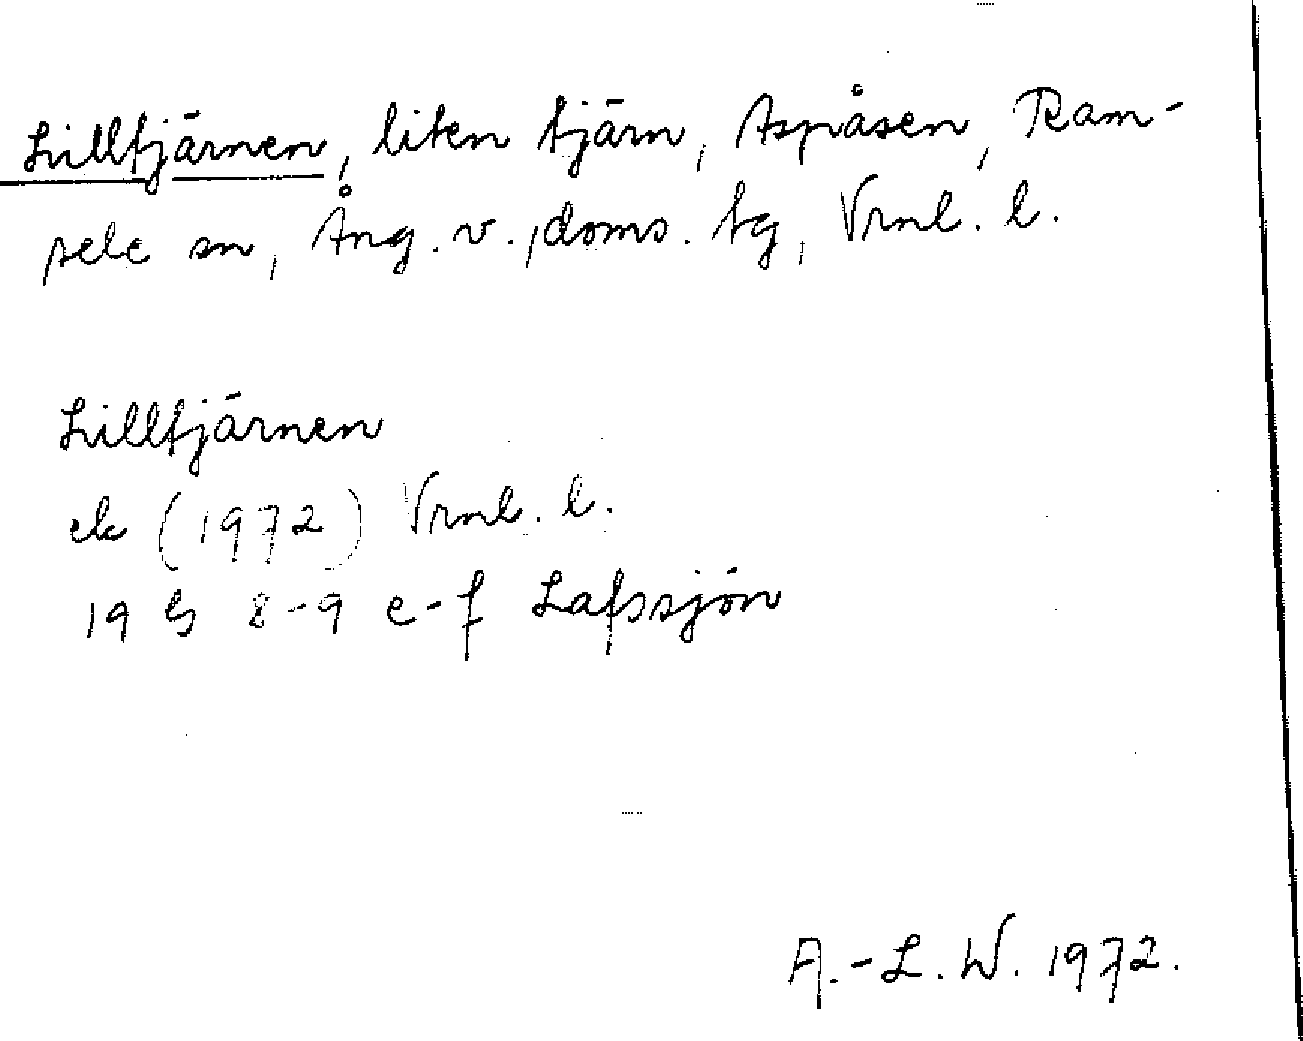 Lilltjärnen, liten tjärn, Aspåsen, Ram-
sele sn, Ång. v., doms. tg, Vrnl. l.
Lilltjärnen
ek (1972) Vrnl. l.
19 G 8-9 e-f Lafssjön
A.-L. W. 1972.